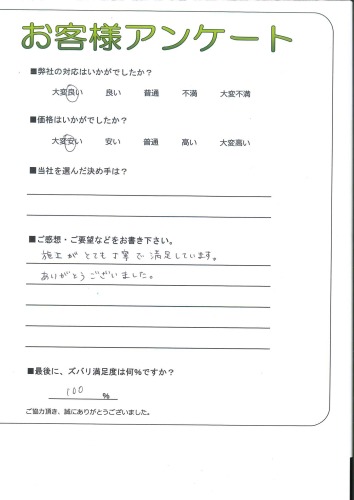 お客様アンケート
■弊社の対応はいかがでしたか？
大変良い 良い 普通 不満 大変不満
■価格はいかがでしたか？
大変安い 安い 普通 高い 大変高い
■当社を選んだ決め手は？
■ご感想・ご要望などをお書き下さい。
施工がとても丁寧で満足しています。
ありがとうございました。
■最後に、ズバリ満足度は何％ですか？
100 %
ご協力頂き、誠にありがとうございました。